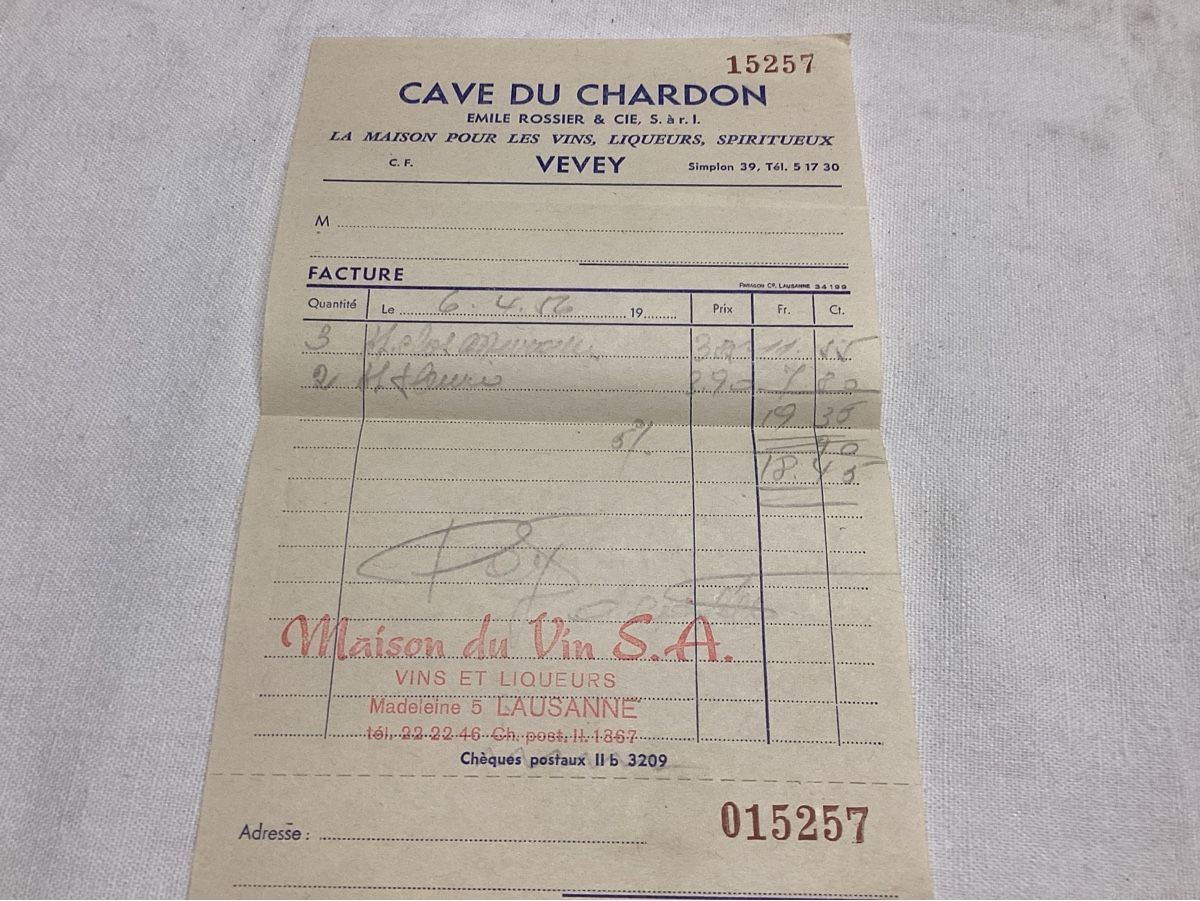 15257
CAVE DU CHARDON
EMILE ROSSIER & CIE, S. à r. l.
LA MAISON POUR LES VINS, LIQUEURS, SPIRITUEUX
C. F. VEVEY Simplon 39, Tél. 5 17 30
M
FACTURE
PARAGON Co. LAUSANNE 34199
Quantité Le 6. 4. 56 19 Prix Fr. Ct.
3 11. 55
2 7. 80
19 35
5% 90
18. 45
Maison du Vin S.A.
VINS ET LIQUEURS
Madeleine 5 LAUSANNE
tél. 22 22 46 Ch. post. II. 1867
Chèques postaux II b 3209
015257
Adresse :